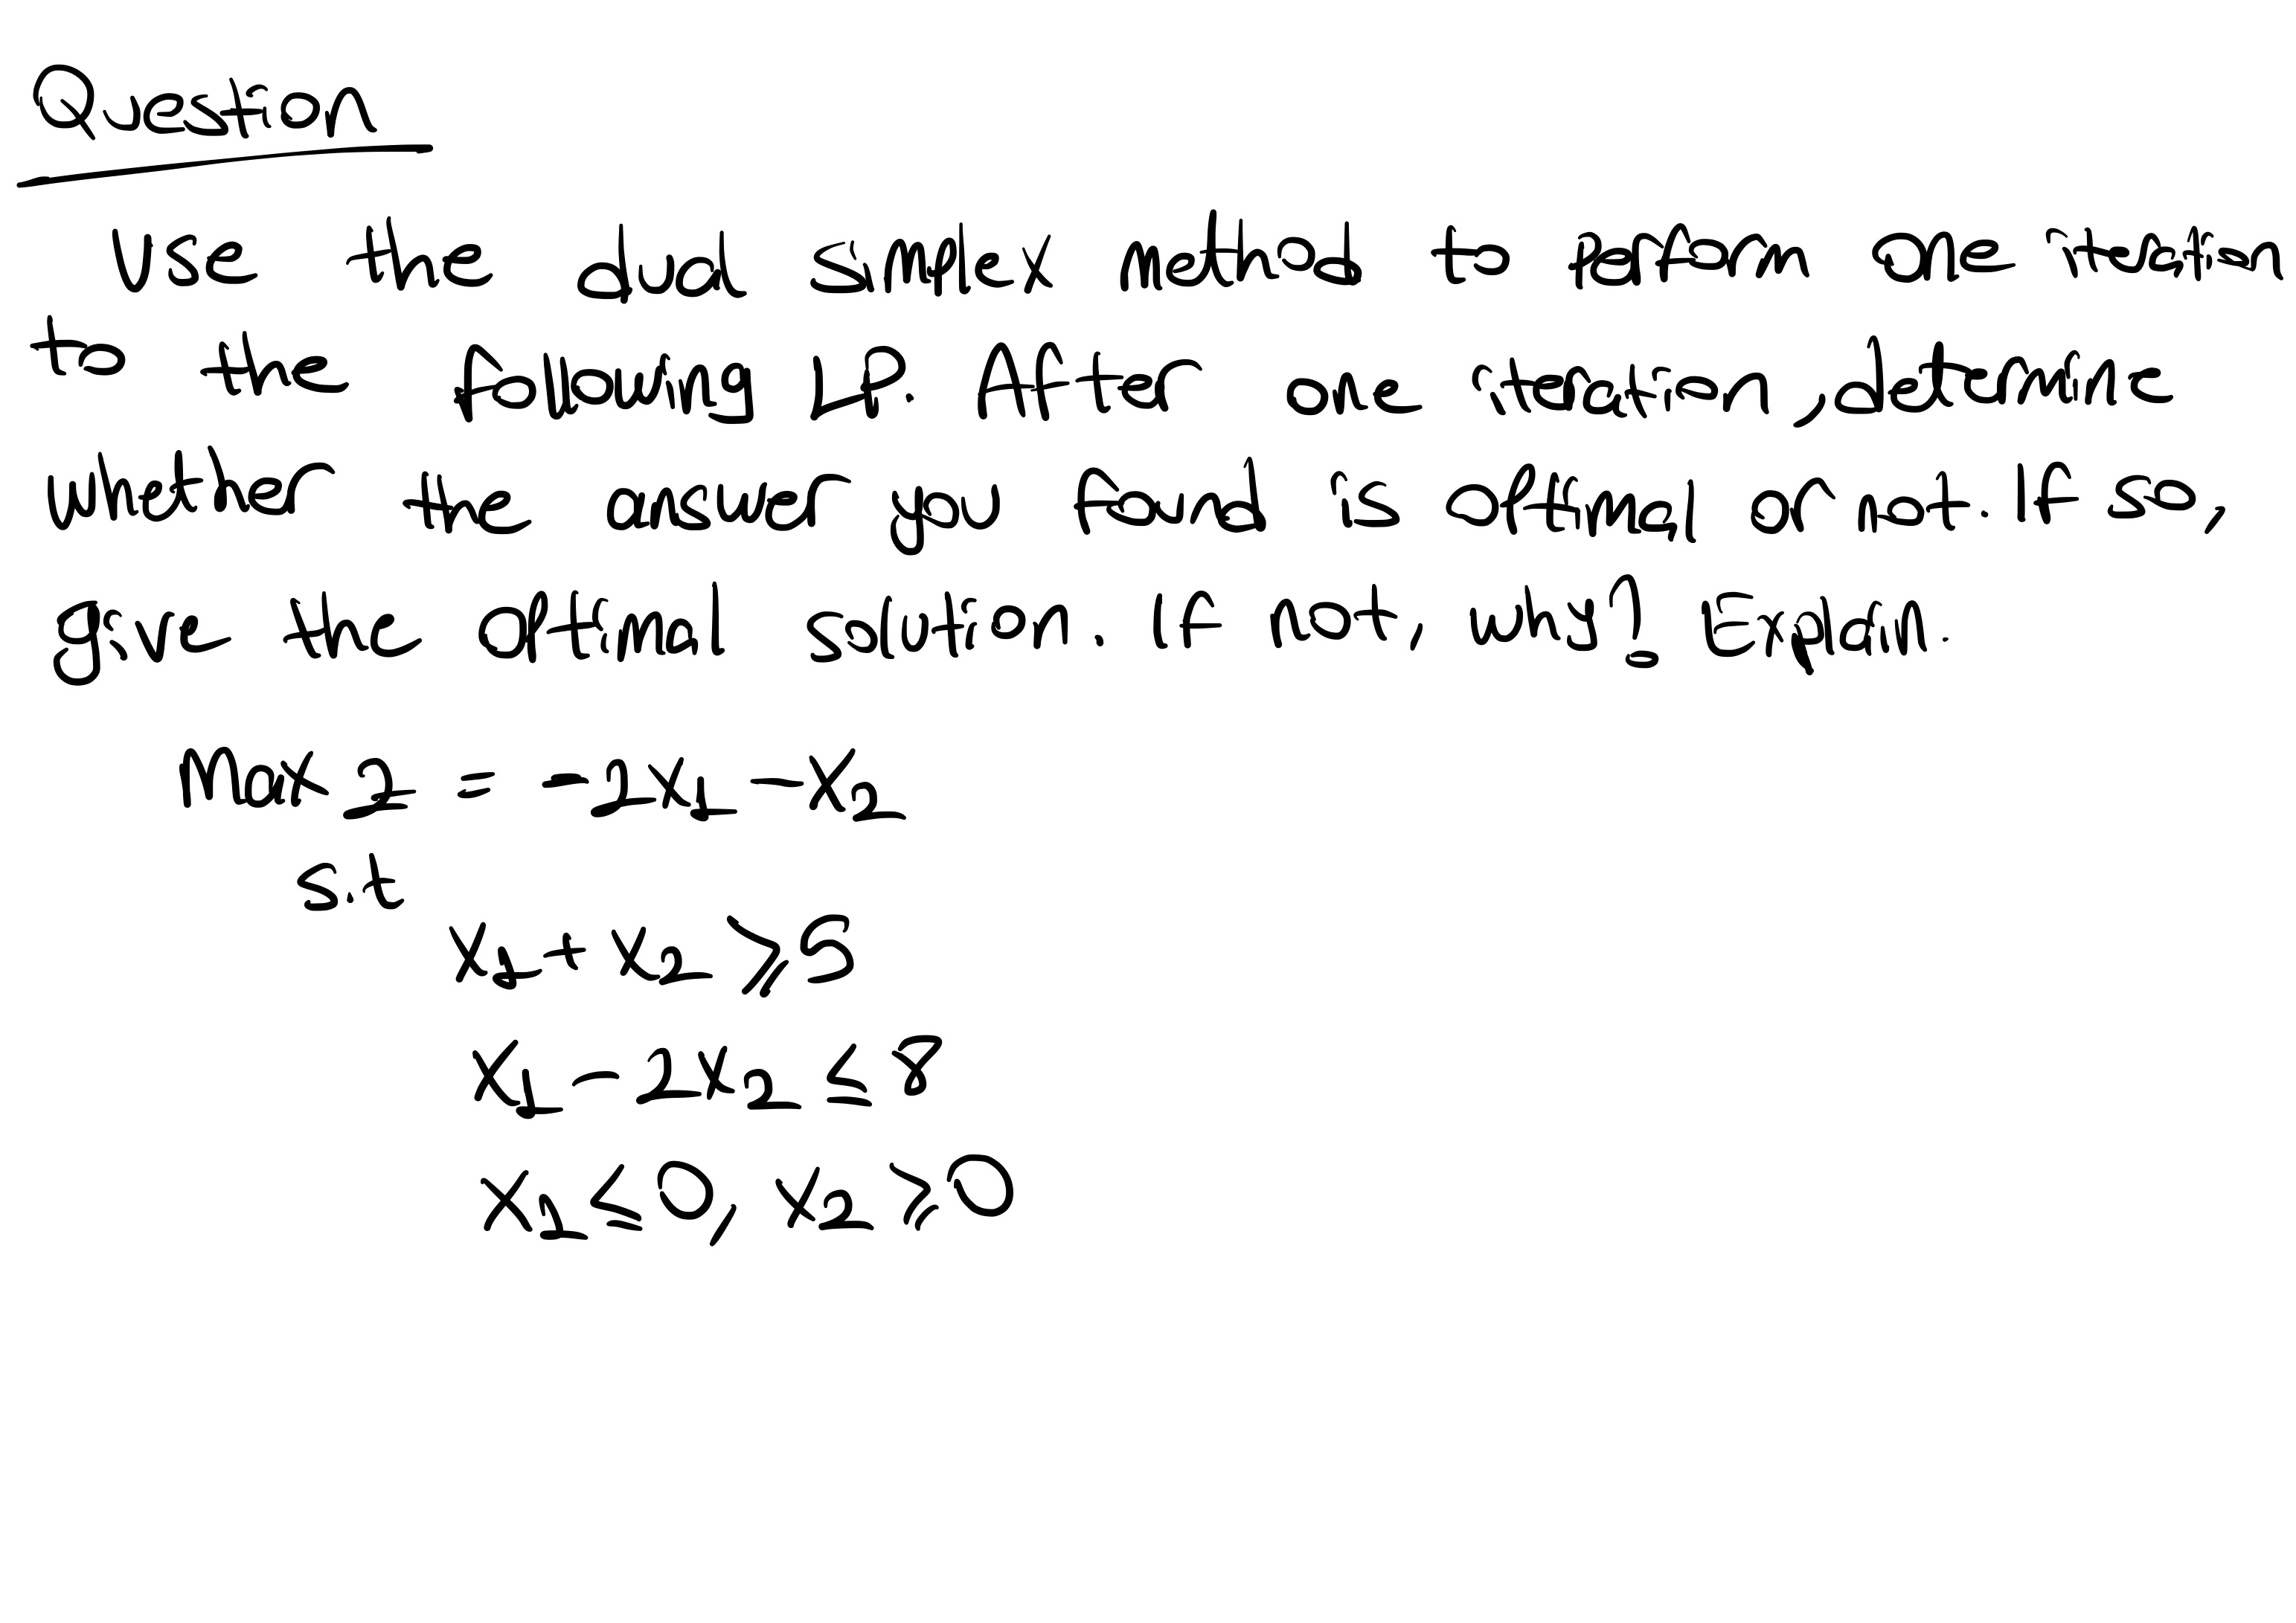 Question
Use the dual simplex method to perform one iteration
to the following LP. After one iteration, determine
whether the answer you found is optimal or not. If so,
give the optimal solution. If not, why? Explain.
Max Z = -2x₁ - x₂
s.t
x₁ + x₂ ⩾ 5
x₁ - 2x₂ ≤ 8
x₁ ≤ 0, x₂ ⩾ 0